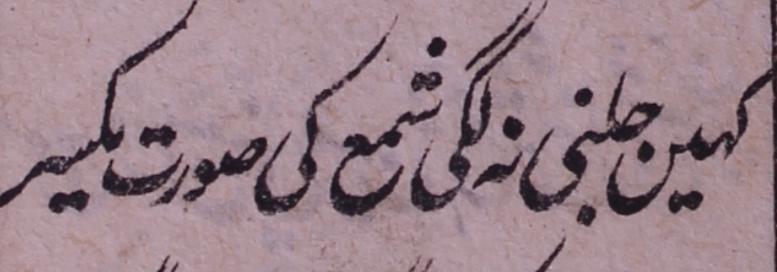 کہین جلنی نہ لگی شمع کی صورت یکسر